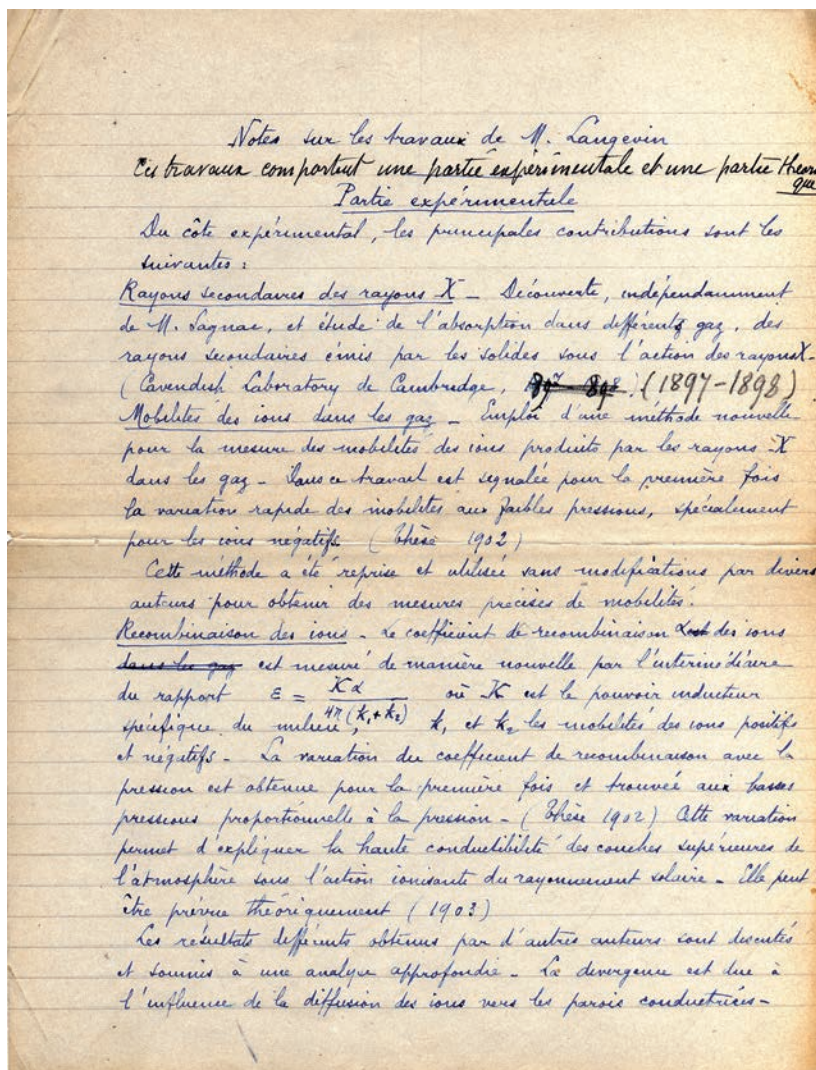 Notes sur les travaux de M. Langevin
Ces travaux comportent une partie expérimentale et une partie théori
que
Partie expérimentale
Du côté expérimental, les principales contributions sont les
suivantes :
Rayons secondaires des rayons X - Découverte, indépendamment
de M. Sagnac, et étude de l'absorption dans différents gaz, des
rayons secondaires émis par les solides sous l'action des rayons X -
(Cavendish Laboratory de Cambridge, 897-898) (1897-1898)
Mobilités des ions dans les gaz - Emploi d'une méthode nouvelle
pour la mesure des mobilités des ions produits par les rayons X
dans les gaz - Dans ce travail est signalée pour la première fois
la variation rapide des mobilités aux faibles pressions, spécialement
pour les ions négatifs (Thèse 1902)
Cette méthode a été reprise et utilisée sans modifications par divers
auteurs pour obtenir des mesures précises de mobilités.
Recombinaison des ions - Le coefficient de recombinaison α des ions
dans les gaz est mesuré de manière nouvelle par l'intermédiaire
du rapport ε = Kα / 4π(k₁+k₂) où K est le pouvoir inducteur
spécifique du milieu, k₁ et k₂ les mobilités des ions positifs
et négatifs - La variation du coefficient de recombinaison avec la
pression est obtenue pour la première fois et trouvée aux basses
pressions proportionnelle à la pression - (Thèse 1902) Cette variation
permet d'expliquer la haute conductibilité des couches supérieures de
l'atmosphère sous l'action ionisante du rayonnement solaire - Elle peut
être prévue théoriquement (1903)
Les résultats différents obtenus par d'autres auteurs sont discutés
et soumis à une analyse approfondie - La divergence est due à
l'influence de la diffusion des ions vers les parois conductrices -